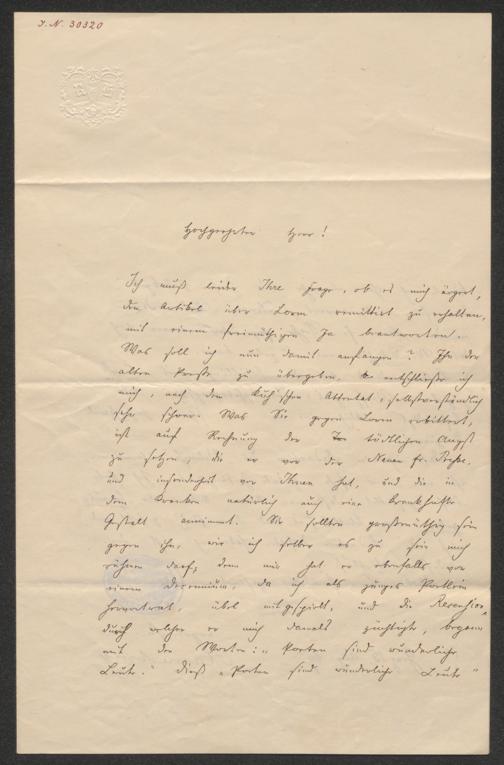 J. N. 30320
Hochgeehrter Herr!
Ich muß leider Ihre Frage, ob es mich ärgert,
den Artikel über Lorm remittirt zu erhalten,
mit einem freimüthigen Ja beantworten.
Was soll ich nun damit anfangen? Ihn der
alten Presse zu übergeben, entschließe ich
mich, nach dem Attentat, selbstverständlich
sehr schwer. Was Sie gegen Lorm erbittert,
ist auf Rechnung der tödtlichen Angst
zu setzen, die er vor der Neuen fr. Presse,
und insonderheit vor Ihnen hat, und die in
dem Kranken natürlich auch eine krankhafte
Gestalt annimmt. Sie sollten großmüthig sein
gegen ihn, wie ich selber es zu sein mich
rühmen darf; denn mir hat er ebenfalls vor
einem Decennium, da ich als junges Poetlein
hervortrat, übel mitgespielt, und die Recension,
durch welche er mich damals züchtigte, begann
mit den Worten: „Poeten sind wunderliche
Leute." Dieß „Poeten sind wunderliche Leute"